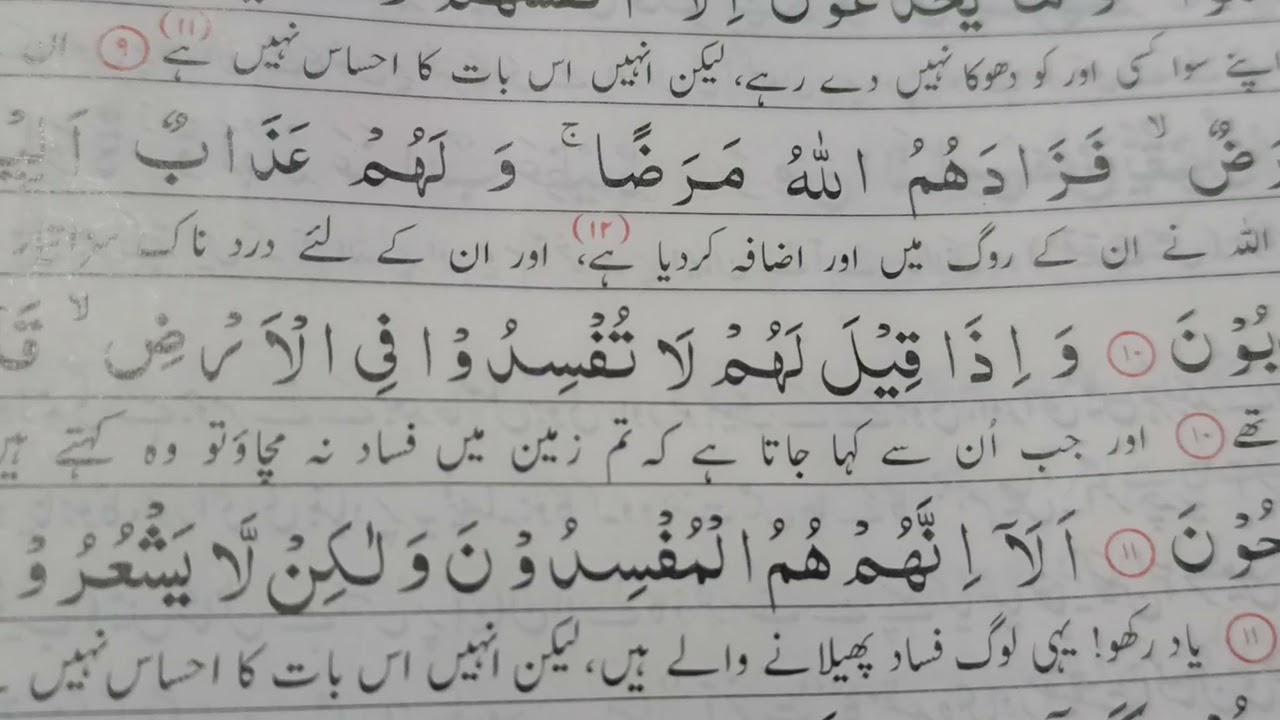 اپنے سوا کسی اور کو دھوکا نہیں دے رہے، لیکن انہیں اس بات کا احساس نہیں ہے (۱۱) ۹ ان
فَزَادَهُمُ اللّٰهُ مَرَضًا ۚ وَ لَهُمْ عَذَابٌ
اللہ نے ان کے روگ میں اور اضافہ کردیا ہے، (۱۲) اور ان کے لئے درد ناک
وَ اِذَا قِيْلَ لَهُمْ لَا تُفْسِدُوْا فِي الْاَرْضِ ۙ ۱۰
تھے ۱۰ اور جب اُن سے کہا جاتا ہے کہ تم زمین میں فساد نہ مچاؤ تو وہ کہتے ہیں
۱۱ اَلَاۤ اِنَّهُمْ هُمُ الْمُفْسِدُوْنَ وَلٰكِنْ لَّا يَشْعُرُوْ
۱۱ یاد رکھو! یہی لوگ فساد پھیلانے والے ہیں، لیکن انہیں اس بات کا احساس نہیں